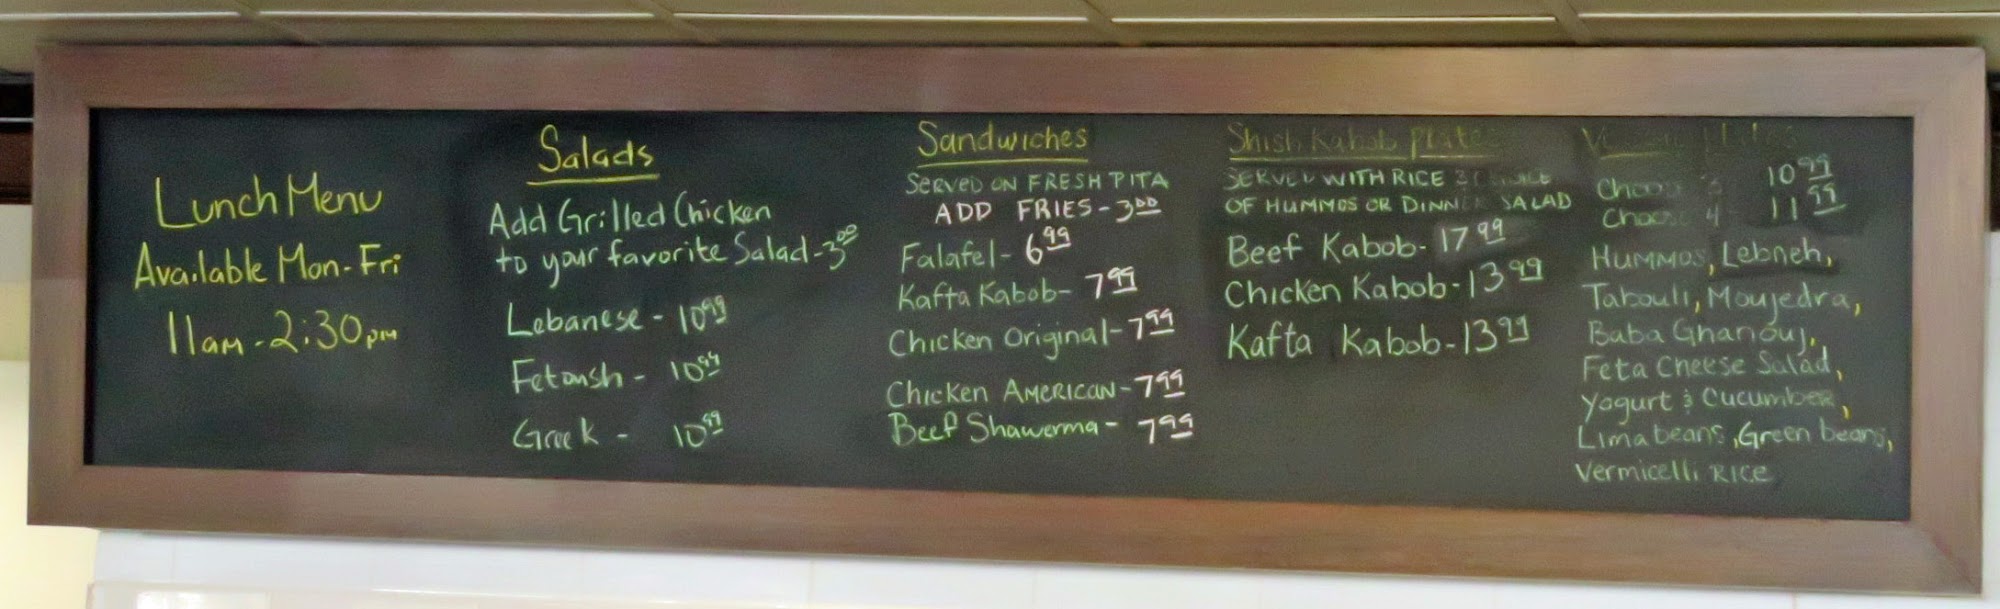 Lunch Menu
Available Mon-Fri
11am-2:30pm
Salads
Add Grilled Chicken
to your favorite Salad-3.00
Lebanese - 10.99
Fetoush - 10.99
Greek - 10.99
Sandwiches
SERVED ON FRESH PITA
ADD FRIES-3.00
Falafel- 6.99
Kafta Kabob- 7.99
Chicken Original-7.99
Chicken AMERICAN-7.99
Beef Shawerma- 7.99
Shish Kabob Plates
SERVED WITH RICE & CHOICE
OF HUMMOS OR DINNER SALAD
Beef Kabob-17.99
Chicken Kabob-13.99
Kafta Kabob-13.99
Choose 3 10.99
Choose 4 11.99
HUMMOS, Lebneh,
Tabouli, Moujedra,
Baba Ghanouj,
Feta Cheese Salad,
Yogurt & Cucumber,
Lima beans, Green beans,
Vermicelli RICE